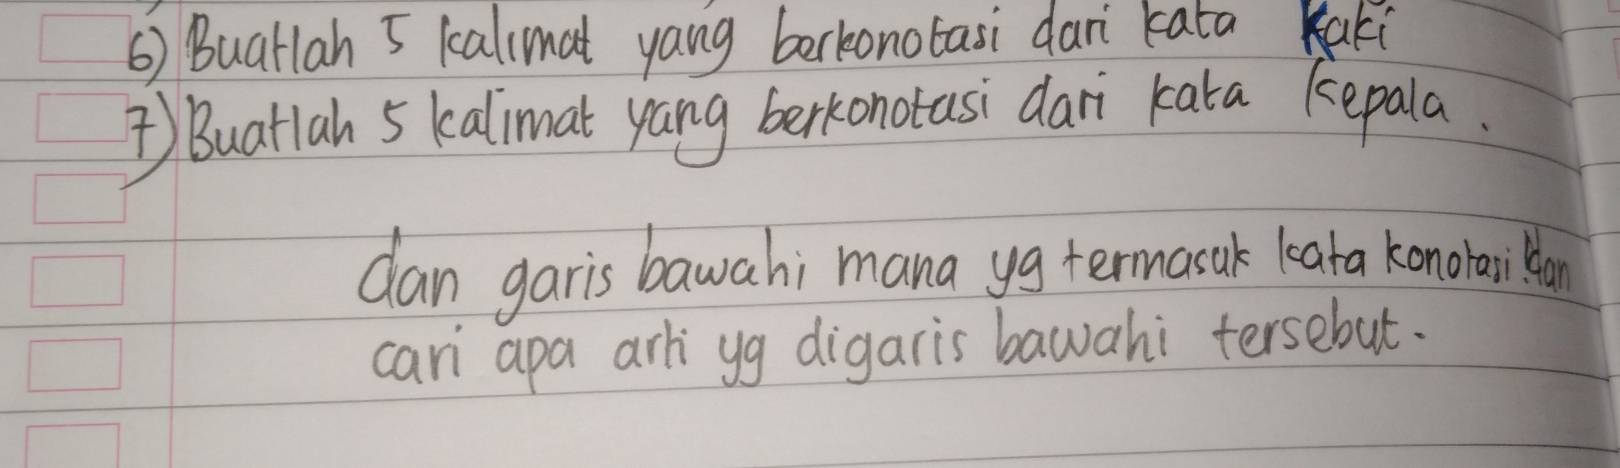 6) Buatlah 5 kalimat yang berkonotasi dari kata kaki
7) Buatlah 5 kalimat yang berkonotasi dari kata Kepala.
dan garis bawahi mana yg termasuk kata konotasi dan
cari apa arti yg digaris bawahi tersebut.